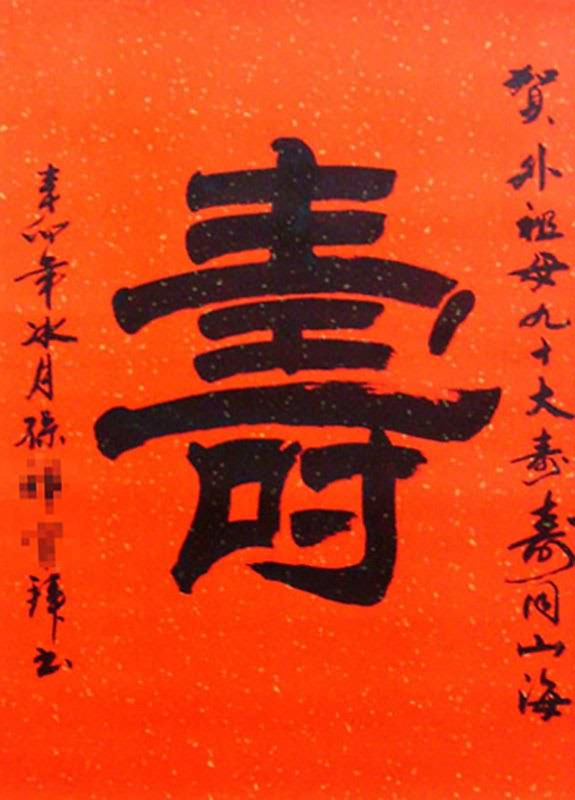 賀外祖母九十大寿寿同山海
壽
辛卯年冰月孫
拜书